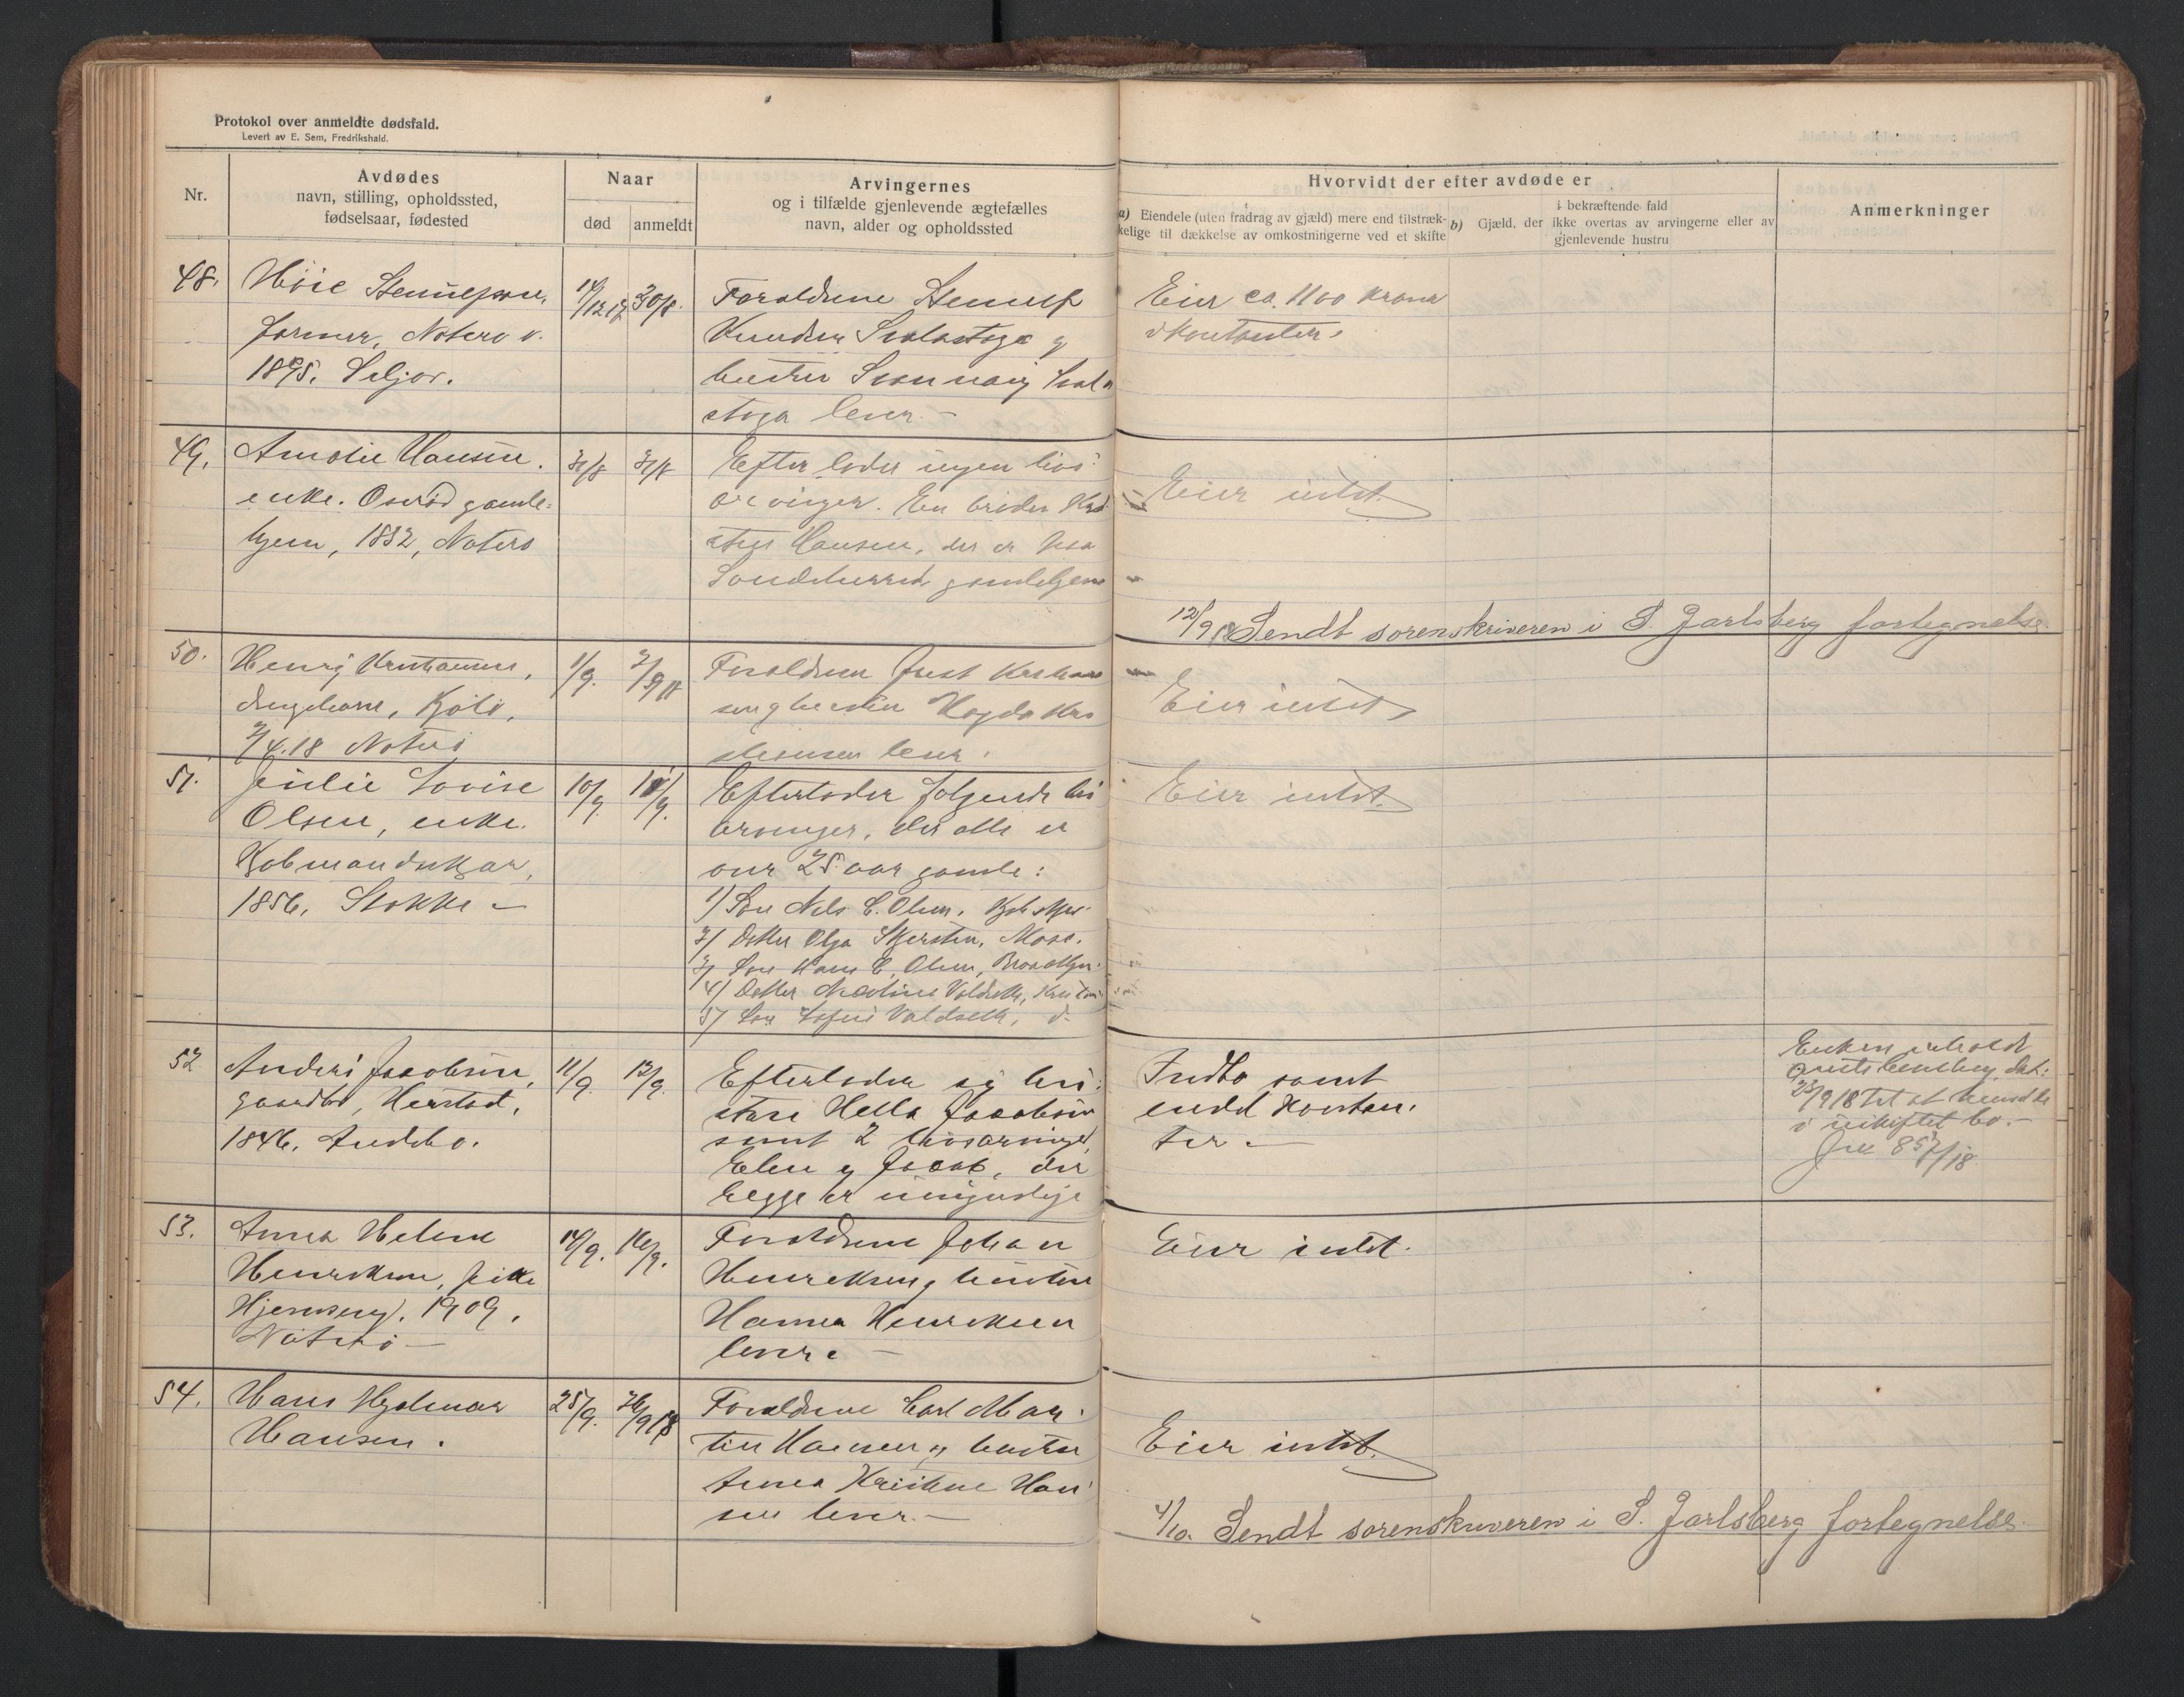 Protokol over anmeldte dødsfald.
Levert av E. Sem, Fredrikshald.
Nr.
Avdødes
navn, stilling, opholdssted,
fødselsaar, fødested
Naar
død
anmeldt
Arvingernes
og i tilfælde gjenlevende ægtefælles
navn, alder og opholdssted
Hvorvidt der efter avdøde er
a) Eiendele (uten fradrag av gjæld) mere end tilstræk-
kelige til dækkelse av omkostningerne ved et skifte
i bekræftende fald
b) Gjæld, der ikke overtas av arvingerne eller av
gjenlevende hustru
Anmerkninger
48.
farmer, Nøterø v.
1895. Seljor.
14/12 17
30/8.
Forældrene
Knudsen
hustru
stoga lever.-
Eier ca. 1100 kroner
i kontanter.
49.
Amalie Hansen.
enke. Oserød gamle-
hjem, 1832, Nøterø
31/8
31/8
Efterlader ingen livs-
arvinger. En broder
Hansen, der er
Sandeherred gamlehjem
Eier intet.
12/9 18 Sendt sorenskriveren i S. Jarlsberg fortegnelse.
50.
Henry Kristiansen,
drengebarn, Kjøle,
2/4.18 Nøterø
1/9.
2/9 18
Forældrene Just
hustru Hagda Kri
stiansen lever.
Eier intet
51.
Julie Lovise
Olsen, enke.
Kjøbmandskjær,
1856, Stokke -
10/9.
10/9.
Efterlader følgende livs
arvinger, der alle er
over 25 aar gamle:
1) Søn Nils C. Olsen,
2) Datter Olga Skjersten, Moss.
3) Søn Hans C. Olsen, Brooklyn.
4) Datter
5) Søn
Eier intet.
52
Anders Jacobsen,
gaardbr, Herstad,
1846. Andebo.
11/9.
13/9.
Efterlader sig hu-
stru Hella Jacobsen
samt 2 livsarvinger
Elen og Jacob, der
begge er umyndige
Indbo samt
endel kontan-
ter.-
Enken erholdt
23/9 18 til at hensidde
i uskiftet bo.-
Jnr 857/18
53.
Anna Helene
Henriksen, pike
Hjemseng. 1909.
Nøterø-
14/9.
16/9.
Forældrene Johan
Henriksen og hustru
Hanna Henriksen
lever.-
Eier intet.
54.
Hans Hjalmar
Hansen.
25/9.
26/9 18
Forældrene Carl Mar-
tin Hansen og hustru
Anna Kristine Han-
sen lever.-
Eier intet.
4/10. Sendt sorenskriveren i S. Jarlsberg fortegnelse.